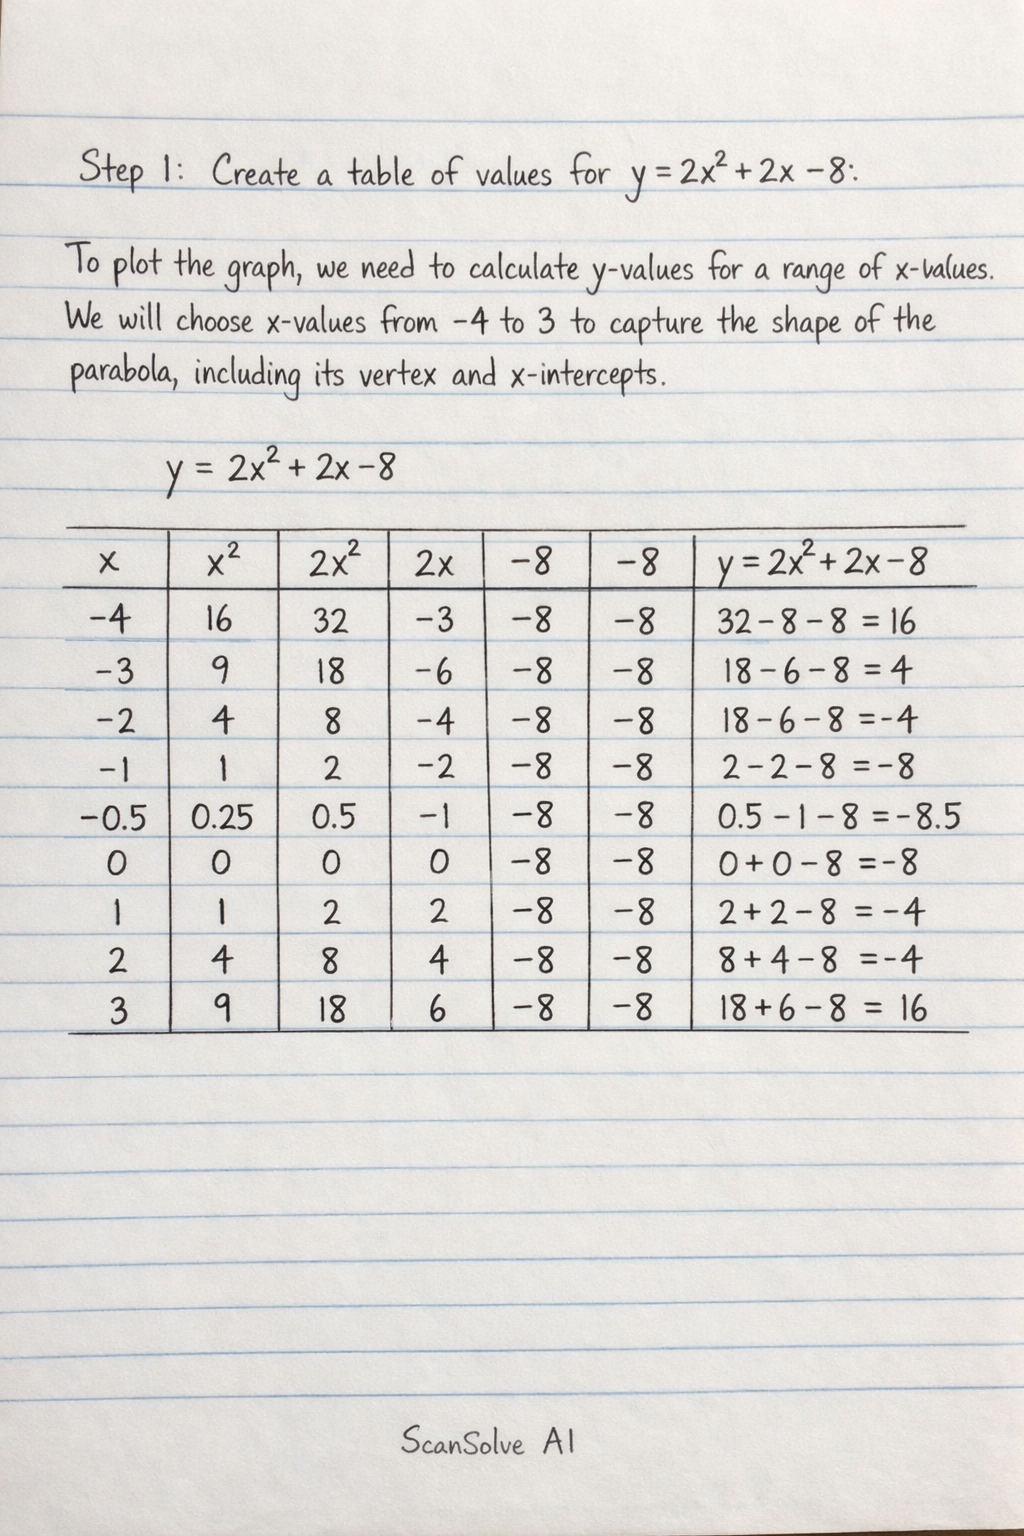 Step 1: Create a table of values for y = 2x² + 2x − 8:
To plot the graph, we need to calculate y-values for a range of x-values.
We will choose x-values from −4 to 3 to capture the shape of the
parabola, including its vertex and x-intercepts.
y = 2x² + 2x − 8
x x² 2x² 2x −8 −8 y = 2x² + 2x − 8
−4 16 32 −3 −8 −8 32 − 8 − 8 = 16
−3 9 18 −6 −8 −8 18 − 6 − 8 = 4
−2 4 8 −4 −8 −8 18 − 6 − 8 = −4
−1 1 2 −2 −8 −8 2 − 2 − 8 = −8
−0.5 0.25 0.5 −1 −8 −8 0.5 − 1 − 8 = −8.5
0 0 0 0 −8 −8 0 + 0 − 8 = −8
1 1 2 2 −8 −8 2 + 2 − 8 = −4
2 4 8 4 −8 −8 8 + 4 − 8 = −4
3 9 18 6 −8 −8 18 + 6 − 8 = 16
ScanSolve AI